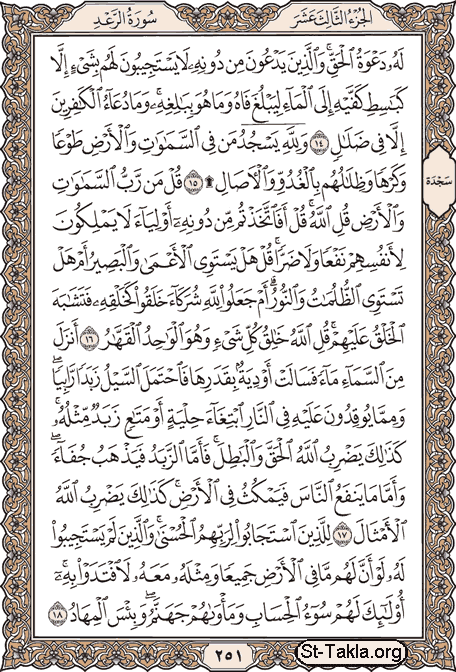 الجزء الثالث عشر
سورة الرعد
لَهُۥ دَعْوَةُ ٱلْحَقِّ ۖ وَٱلَّذِينَ يَدْعُونَ مِن دُونِهِۦ لَا يَسْتَجِيبُونَ لَهُم بِشَىْءٍ إِلَّا
كَبَٰسِطِ كَفَّيْهِ إِلَى ٱلْمَآءِ لِيَبْلُغَ فَاهُ وَمَا هُوَ بِبَٰلِغِهِۦ ۚ وَمَا دُعَآءُ ٱلْكَٰفِرِينَ
إِلَّا فِى ضَلَٰلٍ ١٤ وَلِلَّهِ يَسْجُدُ مَن فِى ٱلسَّمَٰوَٰتِ وَٱلْأَرْضِ طَوْعًا
وَكَرْهًا وَظِلَٰلُهُم بِٱلْغُدُوِّ وَٱلْءَاصَالِ ۩ ١٥ قُلْ مَن رَّبُّ ٱلسَّمَٰوَٰتِ
وَٱلْأَرْضِ قُلِ ٱللَّهُ ۚ قُلْ أَفَٱتَّخَذْتُم مِّن دُونِهِۦٓ أَوْلِيَآءَ لَا يَمْلِكُونَ
لِأَنفُسِهِمْ نَفْعًا وَلَا ضَرًّا ۚ قُلْ هَلْ يَسْتَوِى ٱلْأَعْمَىٰ وَٱلْبَصِيرُ أَمْ هَلْ
تَسْتَوِى ٱلظُّلُمَٰتُ وَٱلنُّورُ ۗ أَمْ جَعَلُوا۟ لِلَّهِ شُرَكَآءَ خَلَقُوا۟ كَخَلْقِهِۦ فَتَشَٰبَهَ
ٱلْخَلْقُ عَلَيْهِمْ ۚ قُلِ ٱللَّهُ خَٰلِقُ كُلِّ شَىْءٍ وَهُوَ ٱلْوَٰحِدُ ٱلْقَهَّٰرُ ١٦ أَنزَلَ
مِنَ ٱلسَّمَآءِ مَآءً فَسَالَتْ أَوْدِيَةٌۢ بِقَدَرِهَا فَٱحْتَمَلَ ٱلسَّيْلُ زَبَدًا رَّابِيًا ۚ
وَمِمَّا يُوقِدُونَ عَلَيْهِ فِى ٱلنَّارِ ٱبْتِغَآءَ حِلْيَةٍ أَوْ مَتَٰعٍ زَبَدٌ مِّثْلُهُۥ ۚ
كَذَٰلِكَ يَضْرِبُ ٱللَّهُ ٱلْحَقَّ وَٱلْبَٰطِلَ ۚ فَأَمَّا ٱلزَّبَدُ فَيَذْهَبُ جُفَآءً ۖ
وَأَمَّا مَا يَنفَعُ ٱلنَّاسَ فَيَمْكُثُ فِى ٱلْأَرْضِ ۚ كَذَٰلِكَ يَضْرِبُ ٱللَّهُ
ٱلْأَمْثَالَ ١٧ لِلَّذِينَ ٱسْتَجَابُوا۟ لِرَبِّهِمُ ٱلْحُسْنَىٰ ۚ وَٱلَّذِينَ لَمْ يَسْتَجِيبُوا۟
لَهُۥ لَوْ أَنَّ لَهُم مَّا فِى ٱلْأَرْضِ جَمِيعًا وَمِثْلَهُۥ مَعَهُۥ لَٱفْتَدَوْا۟ بِهِۦٓ ۚ
أُو۟لَٰٓئِكَ لَهُمْ سُوٓءُ ٱلْحِسَابِ وَمَأْوَىٰهُمْ جَهَنَّمُ ۖ وَبِئْسَ ٱلْمِهَادُ ١٨
سَجْدَة
٢٥١
St-Takla.org